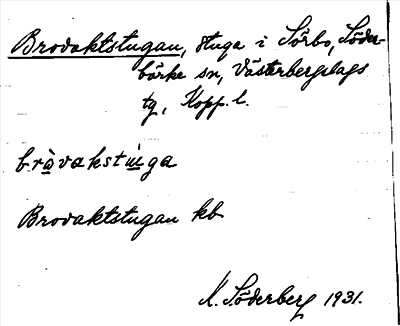 Brovaktstugan, stuga i Sörbo, Söder-
bärke sn, Västerbergslags
tg, Kopp. l.
bròvakstúga
Brovaktstugan kb
N. Söderberg 1931.